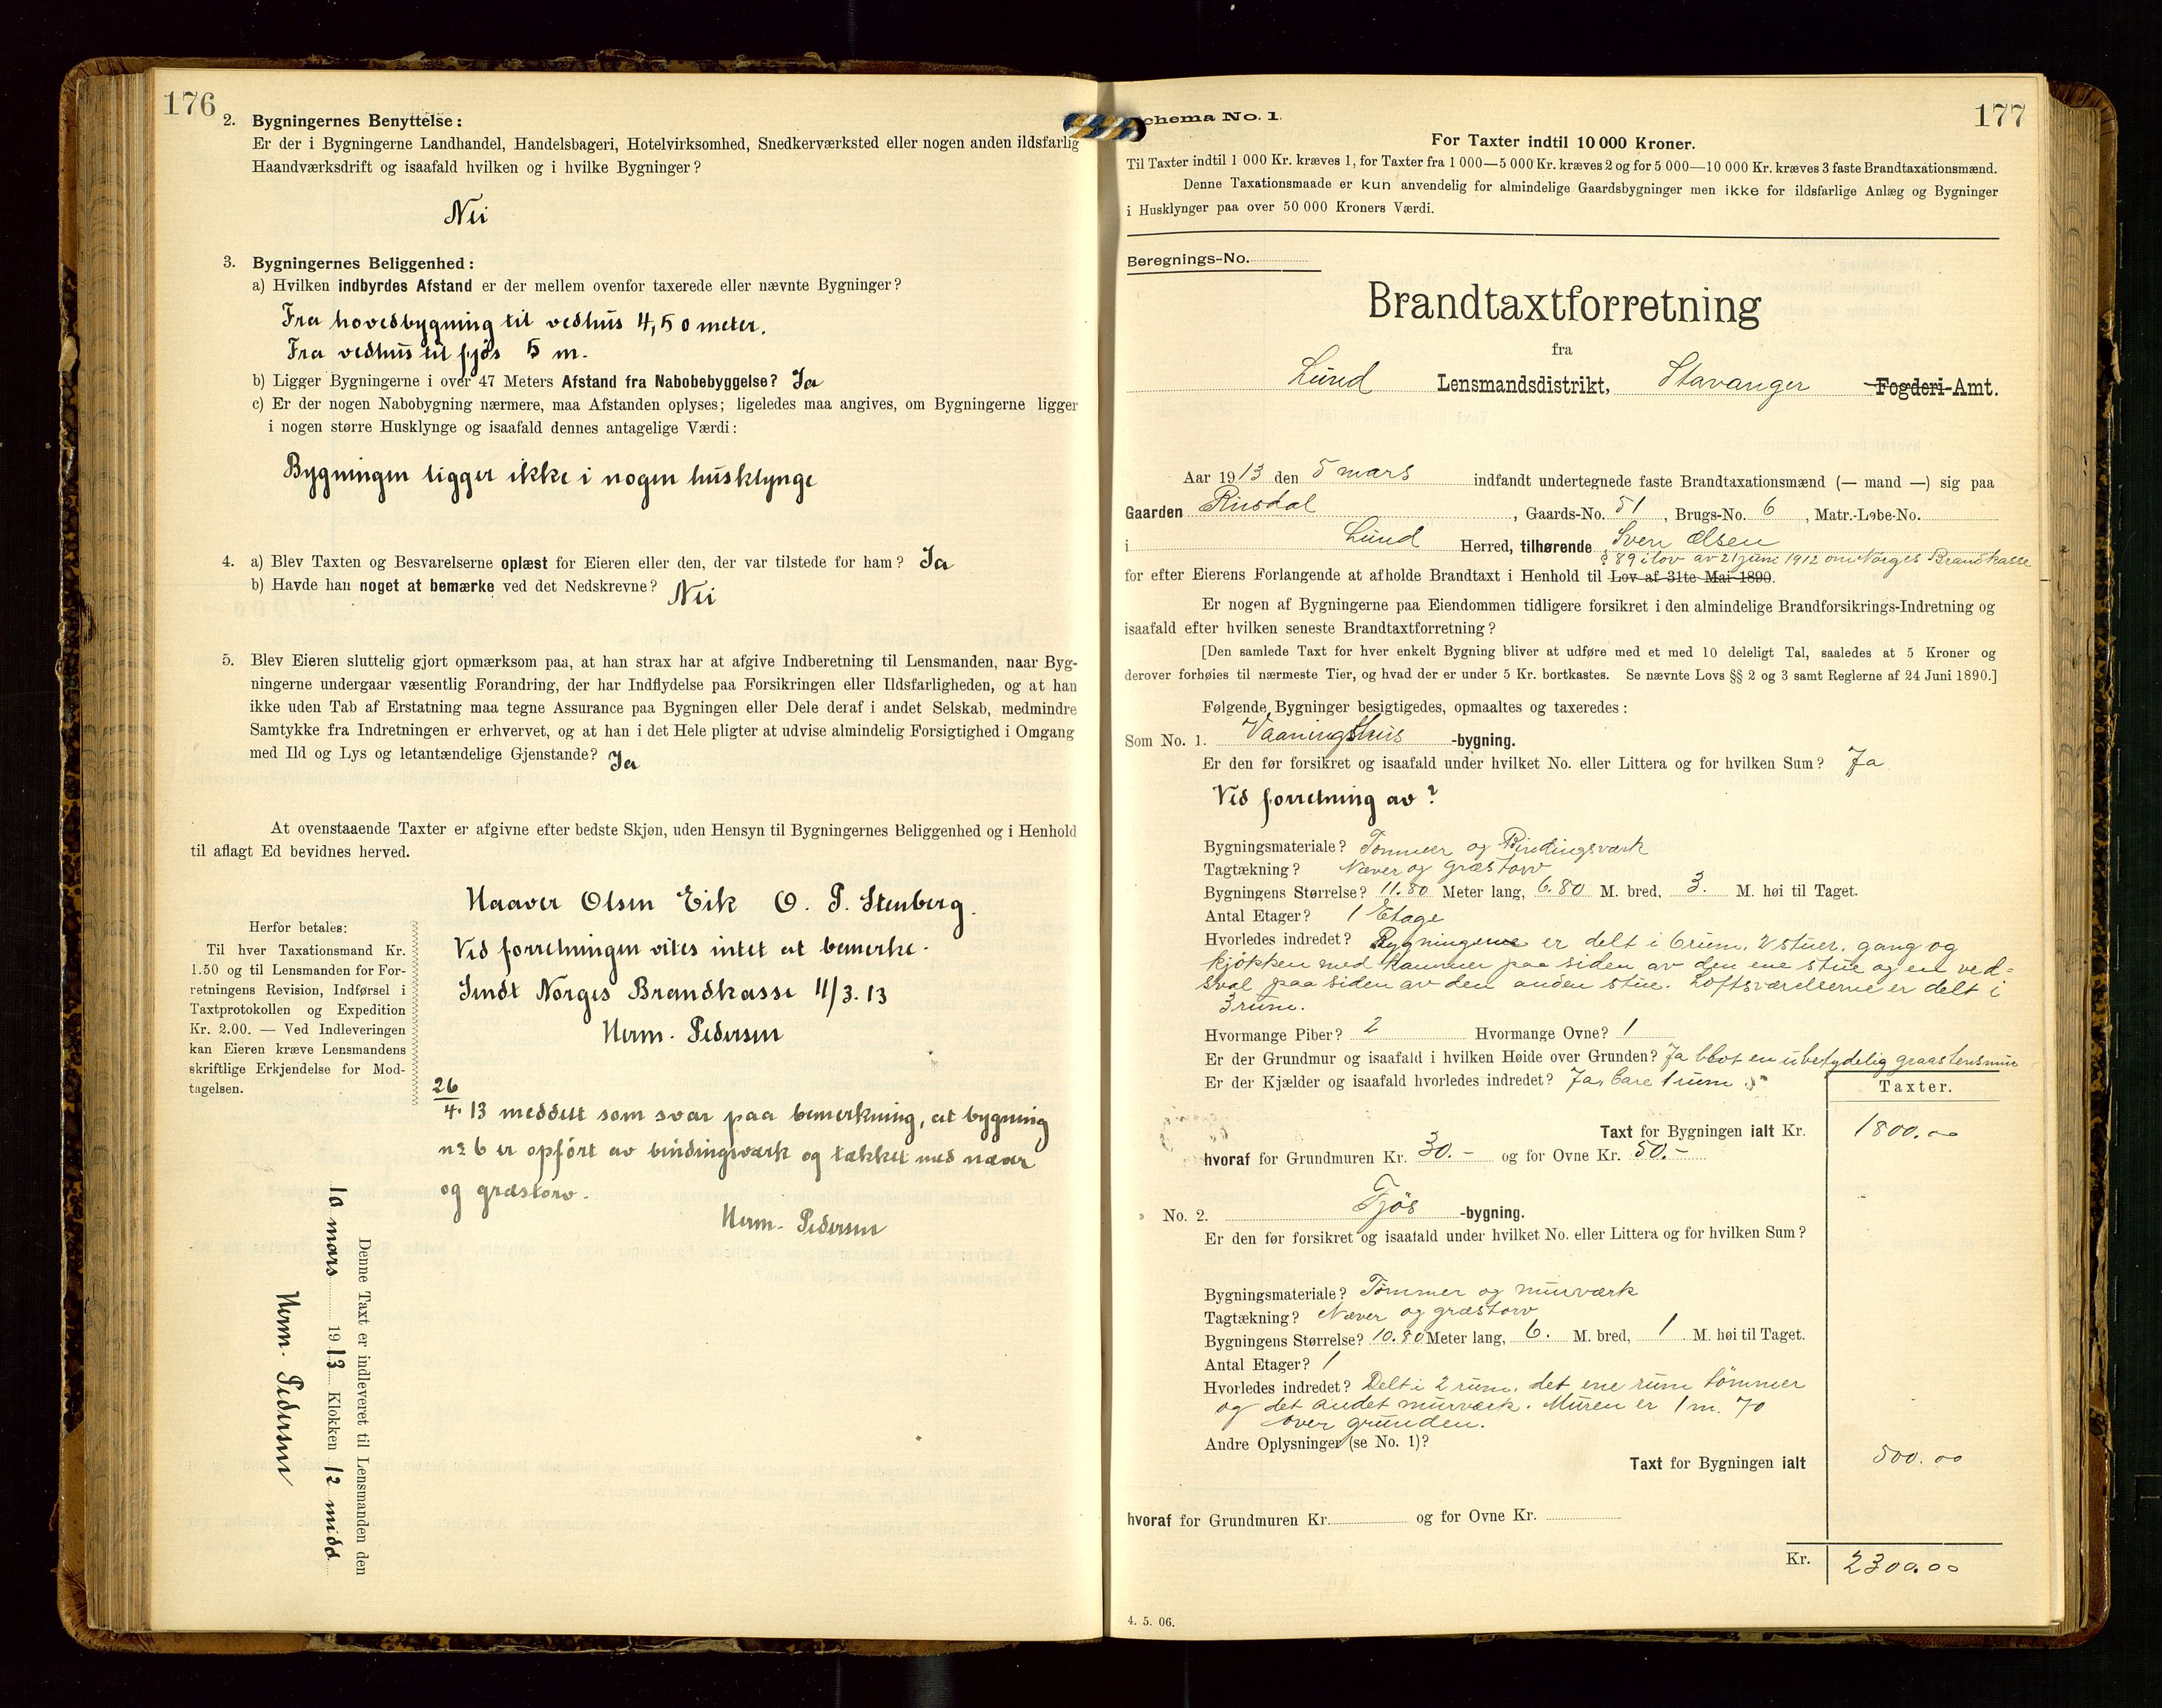 176
2. Bygningernes Benyttelse:
Er der i Bygningerne Landhandel, Handelsbageri, Hotelvirksomhed, Snedkerværksted eller nogen anden ildsfarlig
Haandværksdrift og isaafald hvilken og i hvilke Bygninger?
Nei
3. Bygningernes Beliggenhed:
a) Hvilken indbyrdes Afstand er der mellem ovenfor taxerede eller nævnte Bygninger?
Fra hovedbygning til vedhus 4,50 meter.
Fra vedhus til fjøs 5 m.
b) Ligger Bygningerne i over 47 Meters Afstand fra Nabobebyggelse? Ja
c) Er der nogen Nabobygning nærmere, maa Afstanden oplyses; ligeledes maa angives, om Bygningerne ligger
i nogen større Husklynge og isaafald dennes antagelige Værdi:
Bygningen ligger ikke i nogen husklynge
4. a) Blev Taxten og Besvarelserne oplæst for Eieren eller den, der var tilstede for ham? Ja
b) Havde han noget at bemærke ved det Nedskrevne? Nei
5. Blev Eieren sluttelig gjort opmærksom paa, at han strax har at afgive Indberetning til Lensmanden, naar Byg-
ningerne undergaar væsentlig Forandring, der har Indflydelse paa Forsikringen eller Ildsfarligheden, og at han
ikke uden Tab af Erstatning maa tegne Assurance paa Bygningen eller Dele deraf i andet Selskab, medmindre
Samtykke fra Indretningen er erhvervet, og at han i det Hele pligter at udvise almindelig Forsigtighed i Omgang
med Ild og Lys og letantændelige Gjenstande? Ja
At ovenstaaende Taxter er afgivne efter bedste Skjøn, uden Hensyn til Bygningernes Beliggenhed og i Henhold
til aflagt Ed bevidnes herved.
Haaver Olsen Eik O. P. Stenberg.
Ved forretningen vites intet at bemerke.
Sendt Norges Brandkasse 11/3. 13
Herm. Pedersen
Herfor betales:
Til hver Taxationsmand Kr.
1.50 og til Lensmanden for For-
retningens Revision, Indførsel i
Taxtprotokollen og Expedition
Kr. 2.00. — Ved Indleveringen
kan Eieren kræve Lensmandens
skriftlige Erkjendelse for Mod-
tagelsen.
26/4. 13 meddelt som svar paa bemerkning, at bygning
no 6 er opført av bindingsværk og tækket med næver
og græstorv.
Herm. Pedersen
Denne Taxt er indleveret til Lensmanden den
10 mars 1913 Klokken 12 midd
Herm. Pedersen
177
chema No. 1.
For Taxter indtil 10 000 Kroner.
Til Taxter indtil 1 000 Kr. kræves 1, for Taxter fra 1 000—5 000 Kr. kræves 2 og for 5 000—10 000 Kr. kræves 3 faste Brandtaxationsmænd.
Denne Taxationsmaade er kun anvendelig for almindelige Gaardsbygninger men ikke for ildsfarlige Anlæg og Bygninger
i Husklynger paa over 50 000 Kroners Værdi.
Beregnings-No.
Brandtaxtforretning
fra
Lund Lensmandsdistrikt, Stavanger Fogderi-Amt.
Aar 1913 den 5 mars indfandt undertegnede faste Brandtaxationsmænd (— mand —) sig paa
Gaarden Rusdal, Gaards-No. 51, Brugs-No. 6, Matr.-Løbe-No.
i Lund Herred, tilhørende Sven Olsen
§ 89 i lov av 21 juni 1912 om Norges Brandkasse
for efter Eierens Forlangende at afholde Brandtaxt i Henhold til Lov af 31te Mai 1890.
Er nogen af Bygningerne paa Eiendommen tidligere forsikret i den almindelige Brandforsikrings-Indretning og
isaafald efter hvilken seneste Brandtaxtforretning?
[Den samlede Taxt for hver enkelt Bygning bliver at udføre med et med 10 deleligt Tal, saaledes at 5 Kroner og
derover forhøies til nærmeste Tier, og hvad der er under 5 Kr. bortkastes. Se nævnte Lovs §§ 2 og 3 samt Reglerne af 24 Juni 1890.]
Følgende Bygninger besigtigedes, opmaaltes og taxeredes:
Som No. 1. Vaaningshus -bygning.
Er den før forsikret og isaafald under hvilket No. eller Littera og for hvilken Sum? Ja
Ved forretning av?
Bygningsmateriale? Tømmer og Bindingsværk
Tagtækning? Næver og græstorv
Bygningens Størrelse? 11.80 Meter lang, 6.80 M. bred, 3. M. høi til Taget.
Antal Etager? 1 Etage
Hvorledes indredet? Bygningene er delt i 6 rum. 2 stuer, gang og
kjøkken med kammer paa siden av den ene stue og en ved=
sval paa siden av den anden stue. Loftsværelserne er delt i
3 rum.
Hvormange Piber? 2 Hvormange Ovne? 1
Er der Grundmur og isaafald i hvilken Høide over Grunden? Ja blot en ubetydelig graastensmur
Er der Kjælder og isaafald hvorledes indredet? Ja, bare 1 rum
Taxter.
Taxt for Bygningen ialt Kr. 1800.00
hvoraf for Grundmuren Kr. 30.- og for Ovne Kr. 50.-
No. 2. Fjøs -bygning.
Er den før forsikret og isaafald under hvilket No. eller Littera og for hvilken Sum?
Bygningsmateriale? Tømmer og murværk
Tagtækning? Næver og græstorv
Bygningens Størrelse? 10.80 Meter lang, 6. M. bred, 1 M. høi til Taget.
Antal Etager? 1
Hvorledes indredet? Delt i 2 rum, det ene rum tømmer
og det andet murværk. Muren er 1 m. 70
over grunden.
Andre Oplysninger (se No. 1)?
Taxt for Bygningen ialt 500.00
hvoraf for Grundmuren Kr. og for Ovne Kr.
Kr. 2300.00
4. 5. 06.